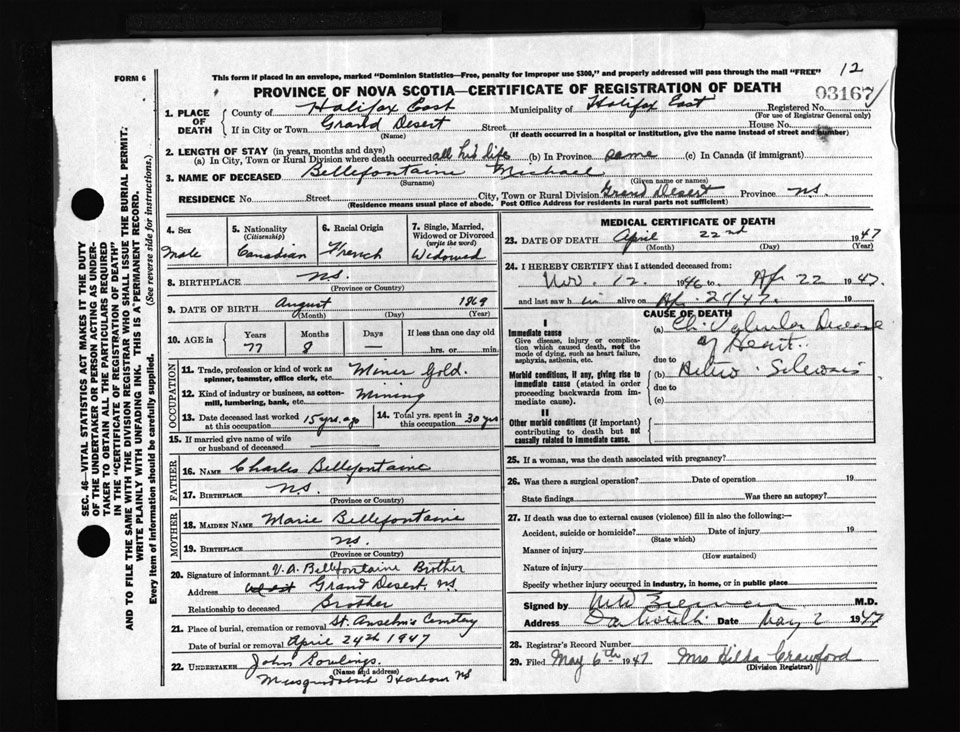 12
FORM 6
This form if placed in an envelope, marked "Dominion Statistics—Free, penalty for improper use $300," and properly addressed will pass through the mail "FREE"
PROVINCE OF NOVA SCOTIA—CERTIFICATE OF REGISTRATION OF DEATH
03167
SEC. 46—VITAL STATISTICS ACT MAKES IT THE DUTY
OF THE UNDERTAKER OR PERSON ACTING AS UNDER-
TAKER TO OBTAIN ALL THE PARTICULARS REQUIRED
IN THE "CERTIFICATE OF REGISTRATION OF DEATH"
AND TO FILE THE SAME WITH THE DIVISION REGISTRAR WHO SHALL ISSUE THE BURIAL PERMIT.
WRITE PLAINLY WITH UNFADING INK. THIS IS A PERMANENT RECORD.
Every item of information should be carefully supplied. (See reverse side for instructions.)
1. PLACE OF DEATH
County of Halifax East Municipality of Halifax East Registered No.
(For use of Registrar General only)
If in City or Town Grand Desert Street House No.
(Name) (If death occurred in a hospital or institution, give the name instead of street and number)
2. LENGTH OF STAY (in years, months and days)
(a) In City, Town or Rural Division where death occurred all his life (b) In Province same (c) In Canada (if immigrant)
3. NAME OF DECEASED Bellefontaine Michael
(Surname) (Given name or names)
RESIDENCE No. Street City, Town or Rural Division Grand Desert Province N.S.
(Residence means usual place of abode. Post Office Address for residents in rural parts not sufficient)
4. Sex
Male
5. Nationality (Citizenship)
Canadian
6. Racial Origin
French
7. Single, Married, Widowed or Divorced (write the word)
Widowed
8. BIRTHPLACE N.S.
(Province or Country)
9. DATE OF BIRTH August 1869
(Month) (Day) (Year)
10. AGE in Years Months Days If less than one day old
77 8 — hrs. or min.
OCCUPATION
11. Trade, profession or kind of work as spinner, teamster, office clerk, etc. Miner Gold.
12. Kind of industry or business, as cotton-mill, lumbering, bank, etc. Mining
13. Date deceased last worked at this occupation 15 yrs. ago
14. Total yrs. spent in this occupation 30 yrs
15. If married give name of wife or husband of deceased
FATHER
16. NAME Charles Bellefontaine
17. BIRTHPLACE N.S.
(Province or Country)
MOTHER
18. MAIDEN NAME Marie Bellefontaine
19. BIRTHPLACE N.S.
(Province or Country)
20. Signature of informant V. A. Bellefontaine Brother
Address West Grand Desert, N.S.
Relationship to deceased Brother
21. Place of burial, cremation or removal St. Anselm's Cemetery
Date of burial or removal April 24th 1947
22. UNDERTAKER John Rowlings.
(Name and address)
Musquodoboit Harbour N.S
MEDICAL CERTIFICATE OF DEATH
23. DATE OF DEATH April 22nd 1947
(Month) (Day) (Year)
24. I HEREBY CERTIFY that I attended deceased from:
Nov. 12. 1946 to Ap. 22 1947.
and last saw him alive on Ap. 21/47. 19
CAUSE OF DEATH
I
Immediate cause
Give disease, injury or complication which caused death, not the mode of dying, such as heart failure, asphyxia, asthenia, etc.
(a) Ch. Valvular Disease
of Heart.
due to
Morbid conditions, if any, giving rise to immediate cause (stated in order proceeding backwards from immediate cause).
(b)
due to
(c)
II
Other morbid conditions (if important) contributing to death but not causally related to immediate cause.
25. If a woman, was the death associated with pregnancy?
26. Was there a surgical operation? Date of operation 19
State findings Was there an autopsy?
27. If death was due to external causes (violence) fill in also the following:—
Accident, suicide or homicide? Date of injury 19
(State which)
Manner of injury
(How sustained)
Nature of injury
Specify whether injury occurred in industry, in home, or in public place
Signed by M.D.
Address Dartmouth Date May 2 1947
28. Registrar's Record Number
29. Filed May 6th 1947 Mrs Hilda Crawford
(Division Registrar)